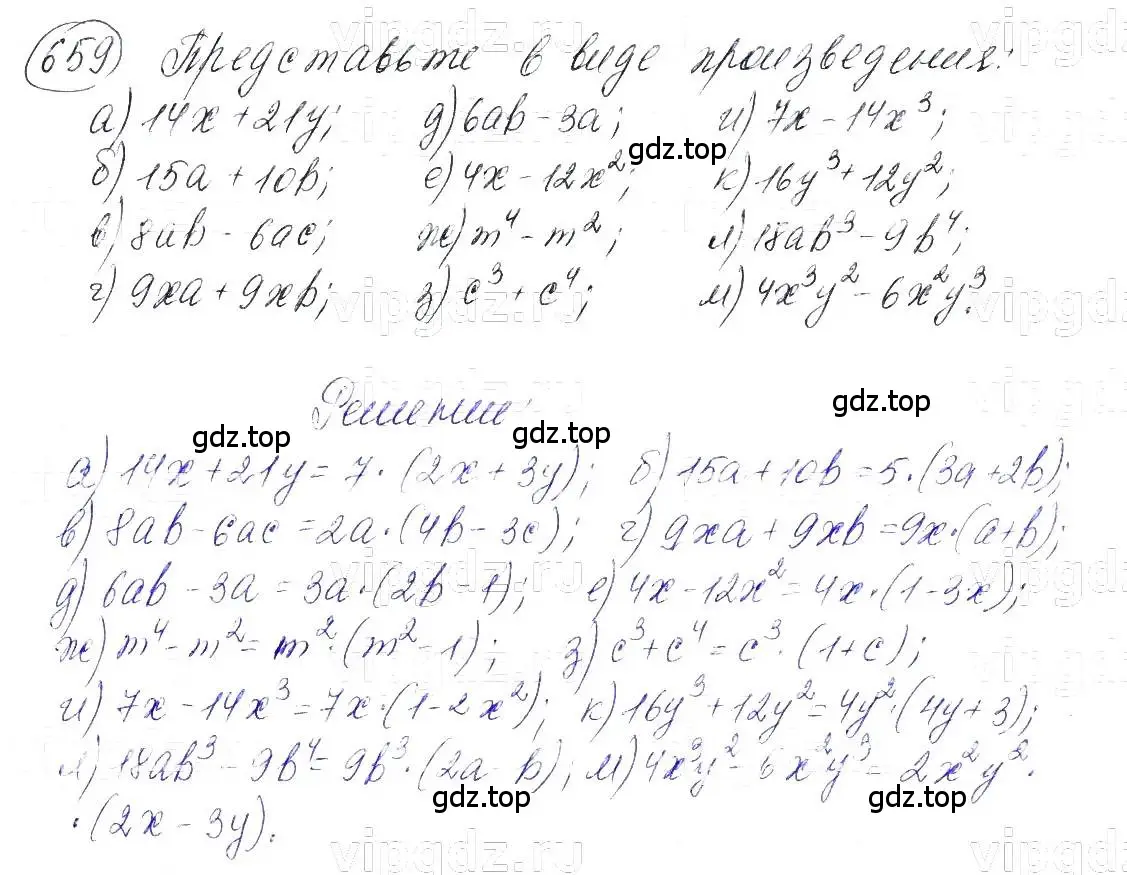 659 Представьте в виде произведения:
а) 14x + 21y; д) 6ab - 3a; и) 7x - 14x³;
gdz.top
б) 15a + 10b; е) 4x - 12x²; к) 16y³ + 12y²;
в) 8ab - 6ac; ж) m⁴ - m²; л) 18ab³ - 9b⁴;
г) 9xa + 9xb; з) c³ + c⁴; м) 4x³y² - 6x²y³.
vipgdz
Решение:
vipgdz.ru
gdz.top gdz.top gdz.top
а) 14x + 21y = 7 · (2x + 3y); б) 15a + 10b = 5 · (3a + 2b);
в) 8ab - 6ac = 2a · (4b - 3c); г) 9xa + 9xb = 9x · (a + b);
д) 6ab - 3a = 3a · (2b 1); е) 4x - 12x² = 4x · (1 - 3x);
ж) m⁴ - m² = m² · (m² - 1); з) c³ + c⁴ = c³ · (1 + c);
и) 7x - 14x³ = 7x · (1 - 2x²); к) 16y³ + 12y² = 4y² · (4y + 3);
л) 18ab³ - 9b⁴ = 9b³ · (2a b); м) 4x³y² - 6x²y³ = 2x²y² ·
gdz.top gdz.top
· (2x - 3y).
vipgdz.ru